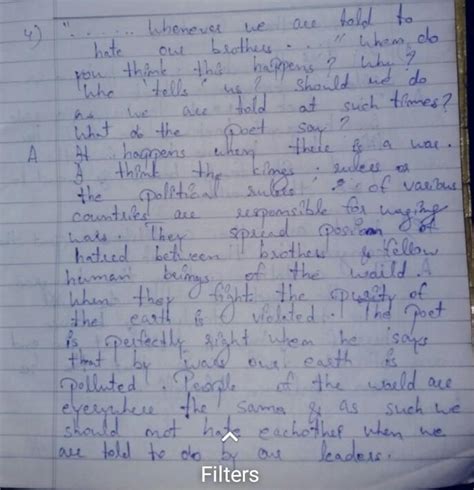 4) "...... Whenever we are told to
hate our brothers..." When do
you think this happens? Why?
Who 'tells' us? Should we do
as we are told at such times?
What do the poet say?
A It happens when there is a war.
I think the kings, rulers or
the political rules of various
countries are responsible for waging
wars. They spread posion of
hatred between brothers & fellow
human beings of the world.
When they fight the purity of
the earth is violated. The poet
is perfectly right when he says
that by wars our earth is
polluted. People of the world are
everywhere the same & as such we
should not hate eachother when we
are told to do by our leaders.
Filters